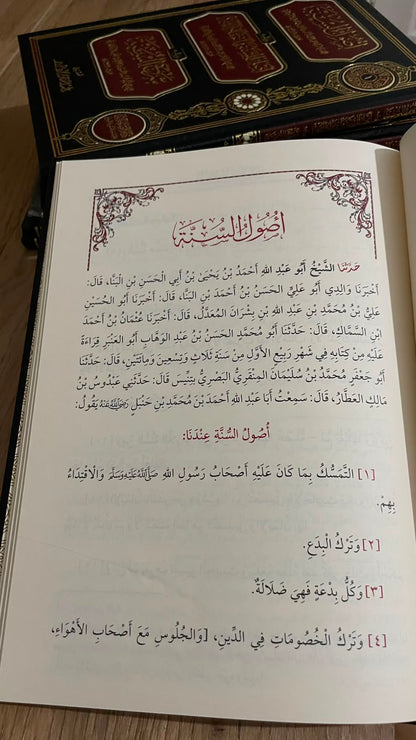 أُصُولُ السُّنَّةِ
حَدَّثَنَا الشَّيْخُ أَبُو عَبْدِ اللهِ أَحْمَدُ بْنُ يَحْيَىٰ بْنُ أَبِي الْحَسَنِ بْنِ الْبَنَّا، قَالَ:
أَخْبَرَنَا وَالِدِي أَبُو عَلِيٍّ الْحَسَنُ بْنُ أَحْمَدَ بْنِ الْبَنَّا، قَالَ: أَخْبَرَنَا أَبُو الْحُسَيْنِ
عَلِيُّ بْنُ مُحَمَّدِ بْنِ عَبْدِ اللهِ بْنِ بِشْرَانَ الْمُعَدَّلُ، قَالَ: أَخْبَرَنَا عُثْمَانُ بْنُ أَحْمَدَ
ابْنِ السَّمَّاكِ، قَالَ: حَدَّثَنَا أَبُو مُحَمَّدٍ الْحَسَنُ بْنُ عَبْدِ الْوَهَّابِ أَبُو الْعَنْبَرِ قِرَاءَةً
عَلَيْهِ مِنْ كِتَابِهِ فِي شَهْرِ رَبِيعٍ الأَوَّلِ مِنْ سَنَةِ ثَلَاثٍ وَتِسْعِينَ وَمِائَتَيْنِ، قَالَ: حَدَّثَنَا
أَبُو جَعْفَرٍ مُحَمَّدُ بْنُ سُلَيْمَانَ الْمِنْقَرِيُّ الْبَصْرِيُّ بِتِنِّيسَ قَالَ: حَدَّثَنِي عَبْدُوسُ بْنُ
مَالِكٍ الْعَطَّارُ، قَالَ: سَمِعْتُ أَبَا عَبْدِ اللهِ أَحْمَدَ بْنَ مُحَمَّدِ بْنِ حَنْبَلٍ رَضِيَ اللهُ عَنْهُ يَقُولُ:
أُصُولُ السُّنَّةِ عِنْدَنَا:
[١] التَّمَسُّكُ بِمَا كَانَ عَلَيْهِ أَصْحَابُ رَسُولِ اللهِ صَلَّى اللهُ عَلَيْهِ وَسَلَّمَ وَالاقْتِدَاءُ
بِهِمْ.
[٢] وَتَرْكُ الْبِدَعِ.
[٣] وَكُلُّ بِدْعَةٍ فَهِيَ ضَلَالَةٌ.
[٤] وَتَرْكُ الْخُصُومَاتِ فِي الدِّينِ، [وَالْجُلُوسِ مَعَ أَصْحَابِ الأَهْوَاءِ،